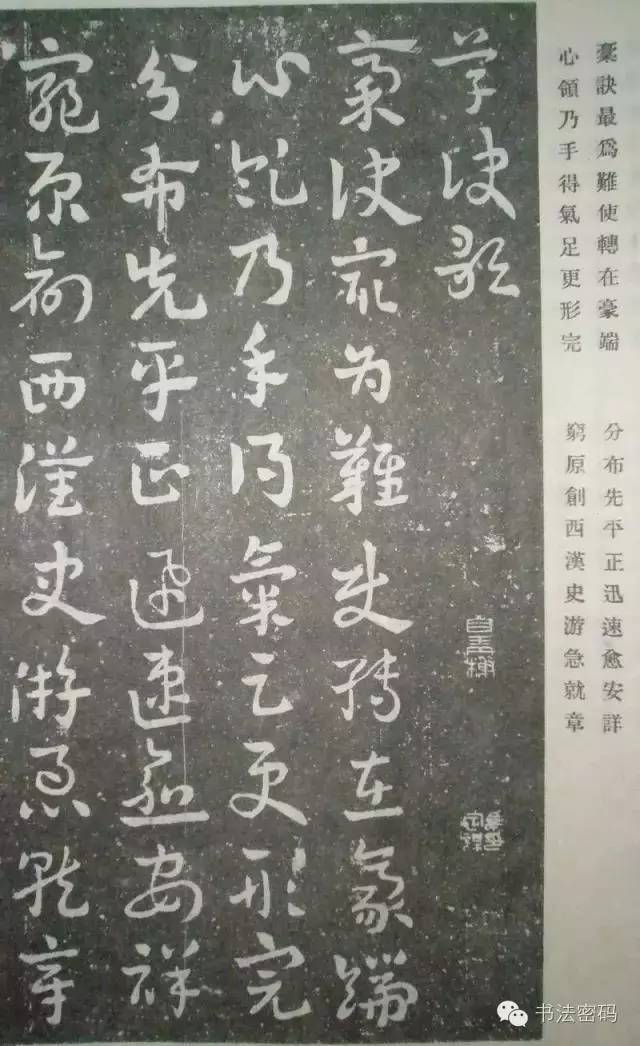 稾訣最爲難使轉在豪端
心領乃手得氣足更形完
分布先平正迅速愈安詳
窮原創西漢史游急就章
草訣歌
稾訣最為難使轉在豪端
心領乃手得氣足更形完
分布先平正迅速愈安祥
窮原創西漢史游急就章
书法密码